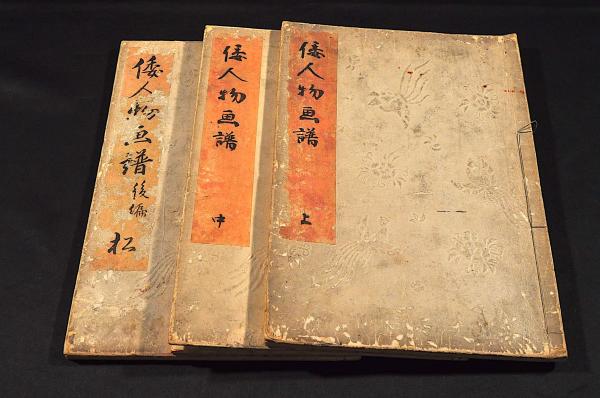 倭人物画譜
上
倭人物画譜
中
倭人物画譜後編
松